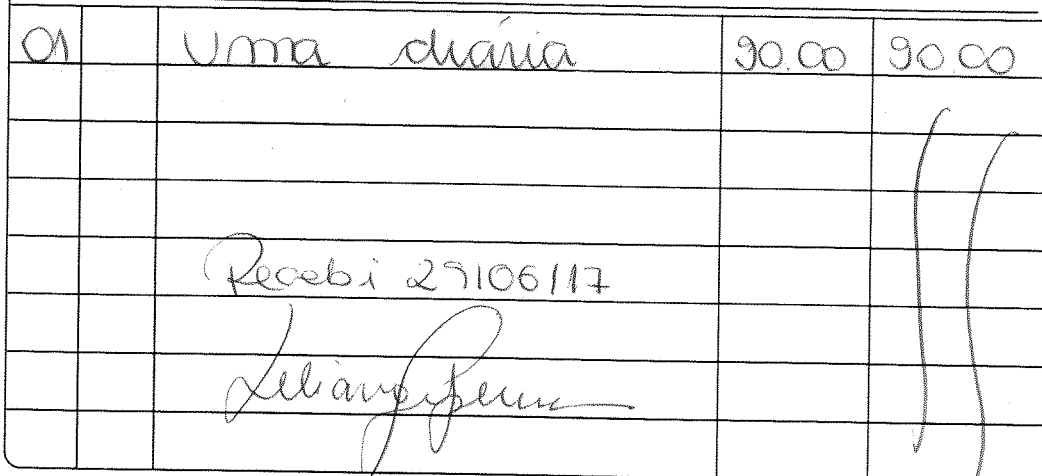 01 Uma diária 90.00 90.00
Recebi 29/06/17